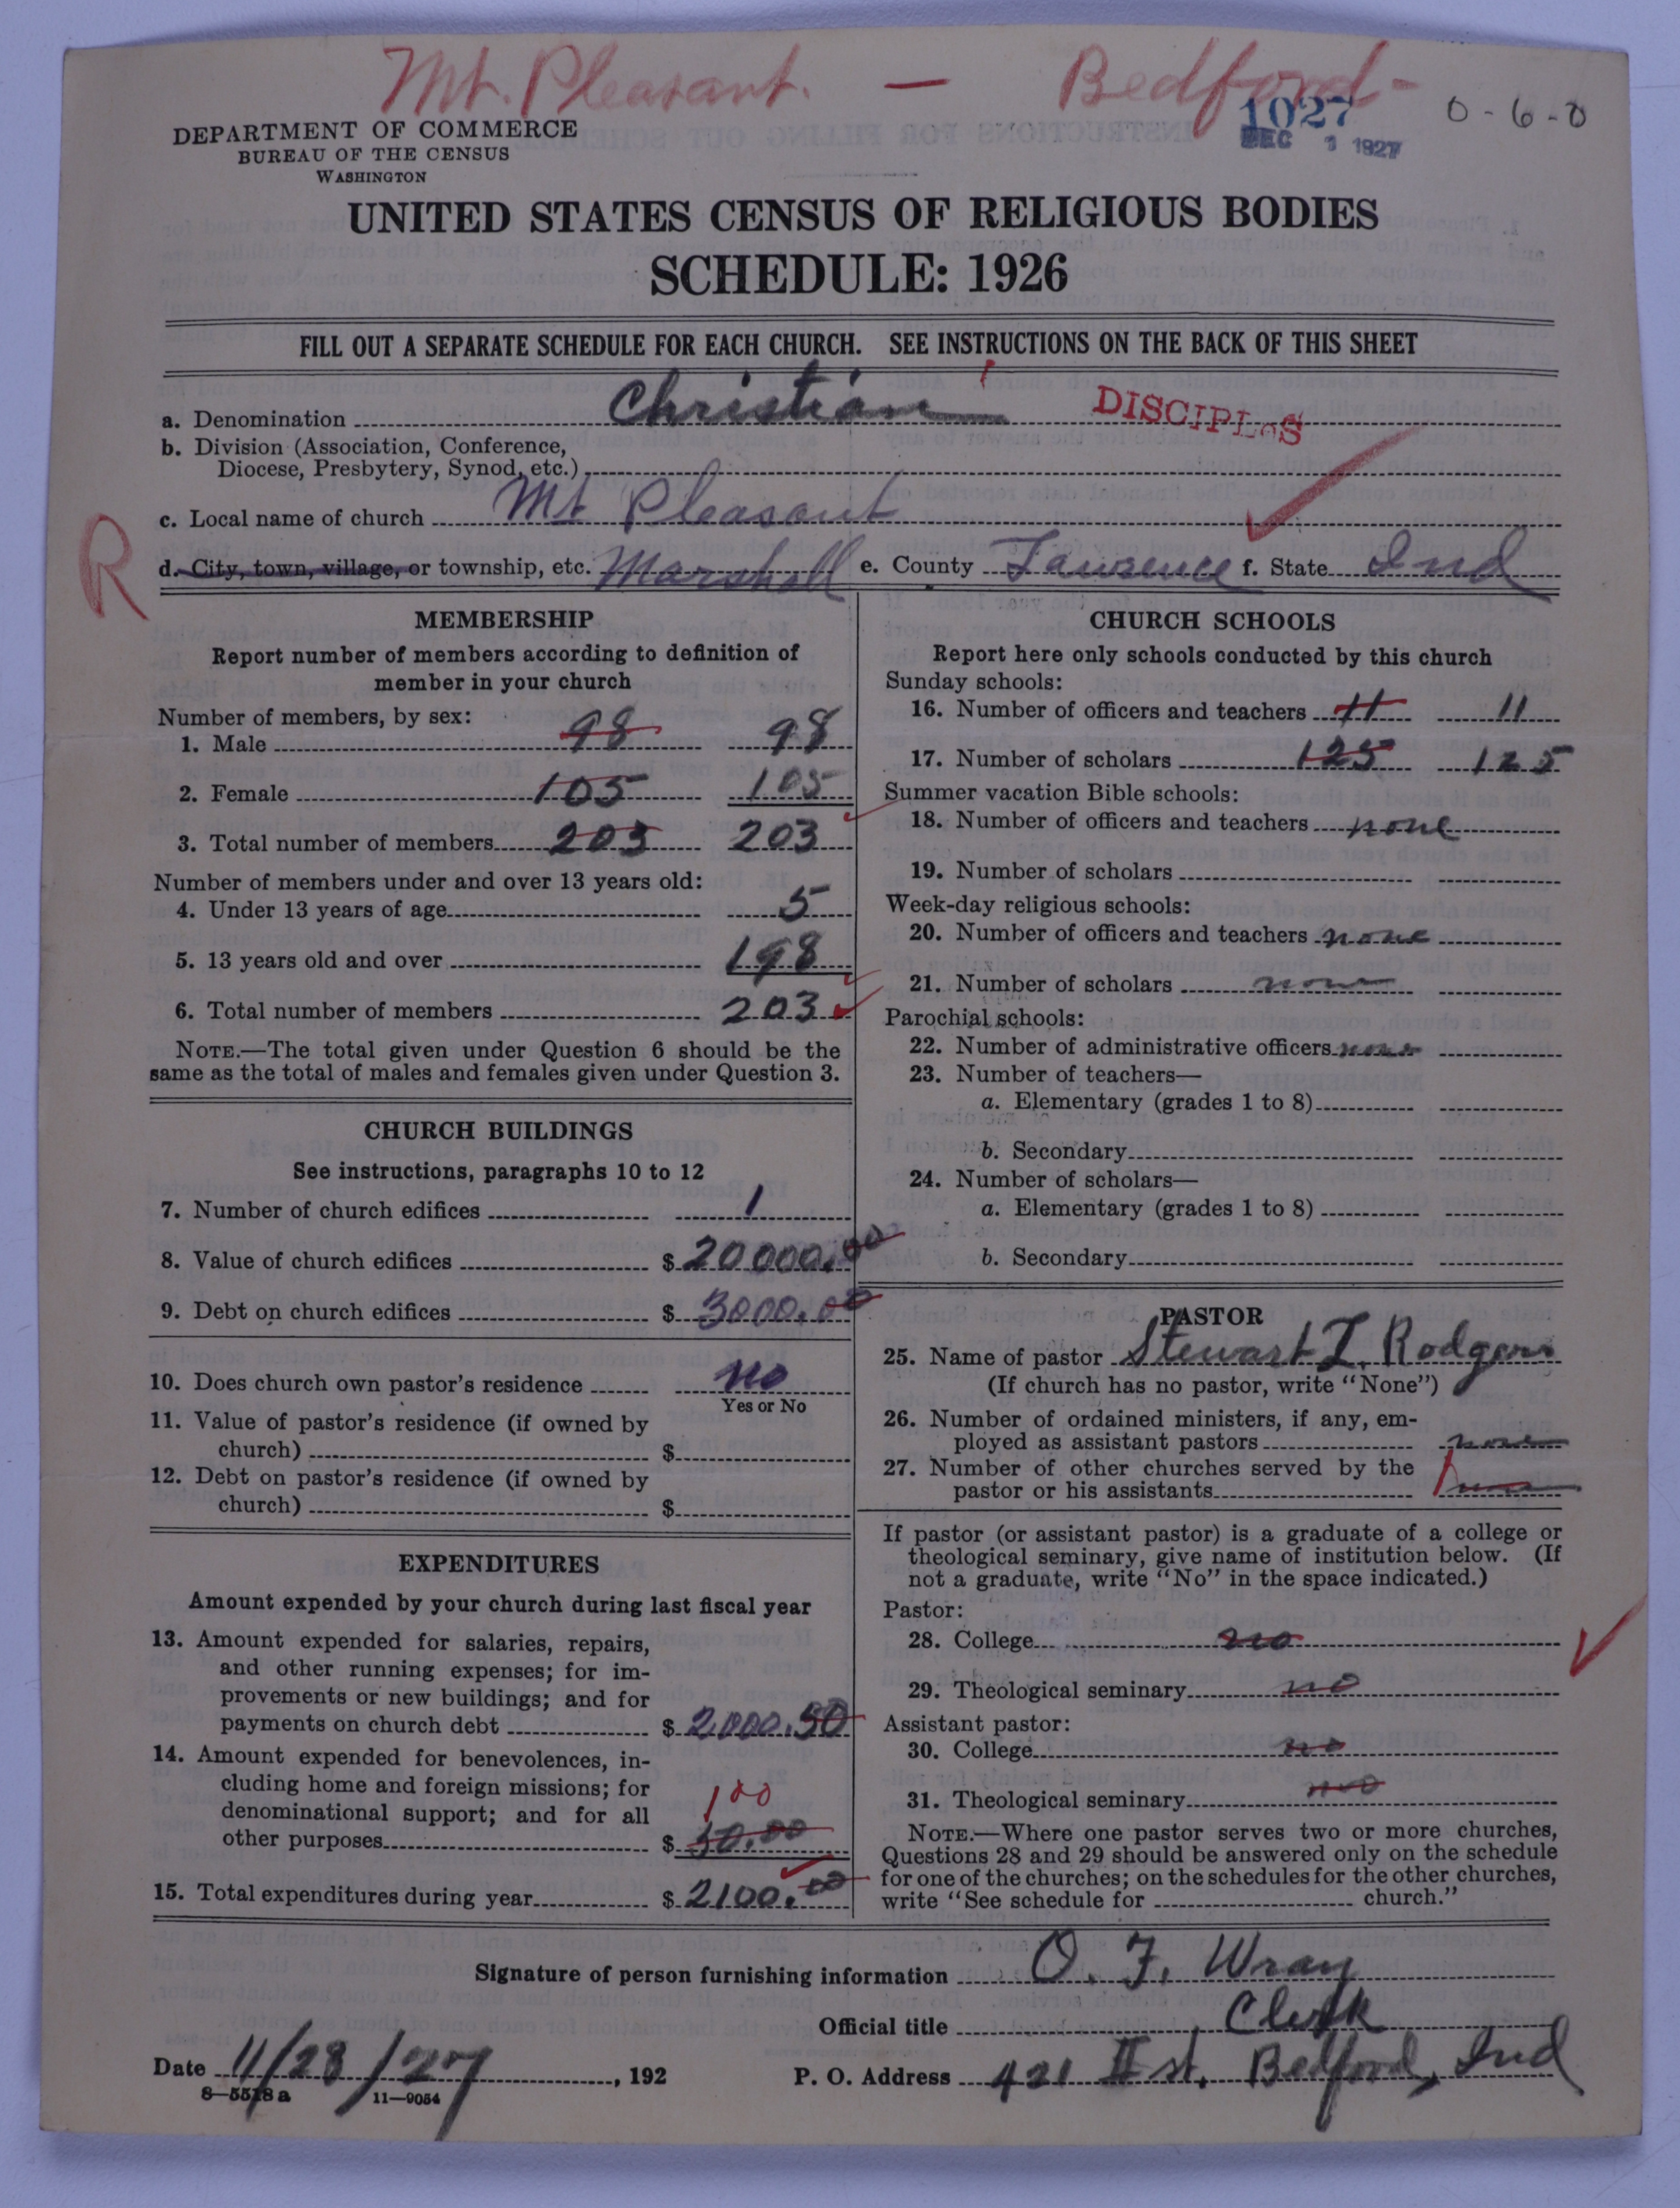 Mt. Pleasant. — Bedford-
1027
DEC 1 1927
0-6-0
DEPARTMENT OF COMMERCE
BUREAU OF THE CENSUS
WASHINGTON
UNITED STATES CENSUS OF RELIGIOUS BODIES
SCHEDULE: 1926
FILL OUT A SEPARATE SCHEDULE FOR EACH CHURCH. SEE INSTRUCTIONS ON THE BACK OF THIS SHEET
a. Denomination Christian DISCIPLES
b. Division (Association, Conference,
Diocese, Presbytery, Synod, etc.)
c. Local name of church Mt Pleasant
R
d. City, town, village, or township, etc. Marshall e. County Lawrence f. State Ind
MEMBERSHIP
Report number of members according to definition of
member in your church
Number of members, by sex:
1. Male 98 98
2. Female 105 105
3. Total number of members 203 203
Number of members under and over 13 years old:
4. Under 13 years of age 5
5. 13 years old and over 198
6. Total number of members 203
NOTE.—The total given under Question 6 should be the
same as the total of males and females given under Question 3.
CHURCH BUILDINGS
See instructions, paragraphs 10 to 12
7. Number of church edifices 1
8. Value of church edifices $ 20000.00
9. Debt on church edifices $ 3000.00
10. Does church own pastor's residence No
Yes or No
11. Value of pastor's residence (if owned by
church) $
12. Debt on pastor's residence (if owned by
church) $
EXPENDITURES
Amount expended by your church during last fiscal year
13. Amount expended for salaries, repairs,
and other running expenses; for im-
provements or new buildings; and for
payments on church debt $ 2000.50
14. Amount expended for benevolences, in-
cluding home and foreign missions; for
denominational support; and for all 100
other purposes $ 50.00
15. Total expenditures during year $ 2100.00
CHURCH SCHOOLS
Report here only schools conducted by this church
Sunday schools:
16. Number of officers and teachers 11 11
17. Number of scholars 125 125
Summer vacation Bible schools:
18. Number of officers and teachers none
19. Number of scholars
Week-day religious schools:
20. Number of officers and teachers none
21. Number of scholars none
Parochial schools:
22. Number of administrative officers none
23. Number of teachers—
a. Elementary (grades 1 to 8)
b. Secondary
24. Number of scholars—
a. Elementary (grades 1 to 8)
b. Secondary
PASTOR
25. Name of pastor Stewart Rodgers
(If church has no pastor, write "None")
26. Number of ordained ministers, if any, em-
ployed as assistant pastors none
27. Number of other churches served by the
pastor or his assistants
If pastor (or assistant pastor) is a graduate of a college or
theological seminary, give name of institution below. (If
not a graduate, write "No" in the space indicated.)
Pastor:
28. College no
29. Theological seminary no
Assistant pastor:
30. College no
31. Theological seminary no
NOTE.—Where one pastor serves two or more churches,
Questions 28 and 29 should be answered only on the schedule
for one of the churches; on the schedules for the other churches,
write "See schedule for church."
Signature of person furnishing information O. F. Wray
Official title Clerk
Date 11/28/27, 192
P. O. Address 421 st. Bedford, Ind
8—5518 a 11—9054